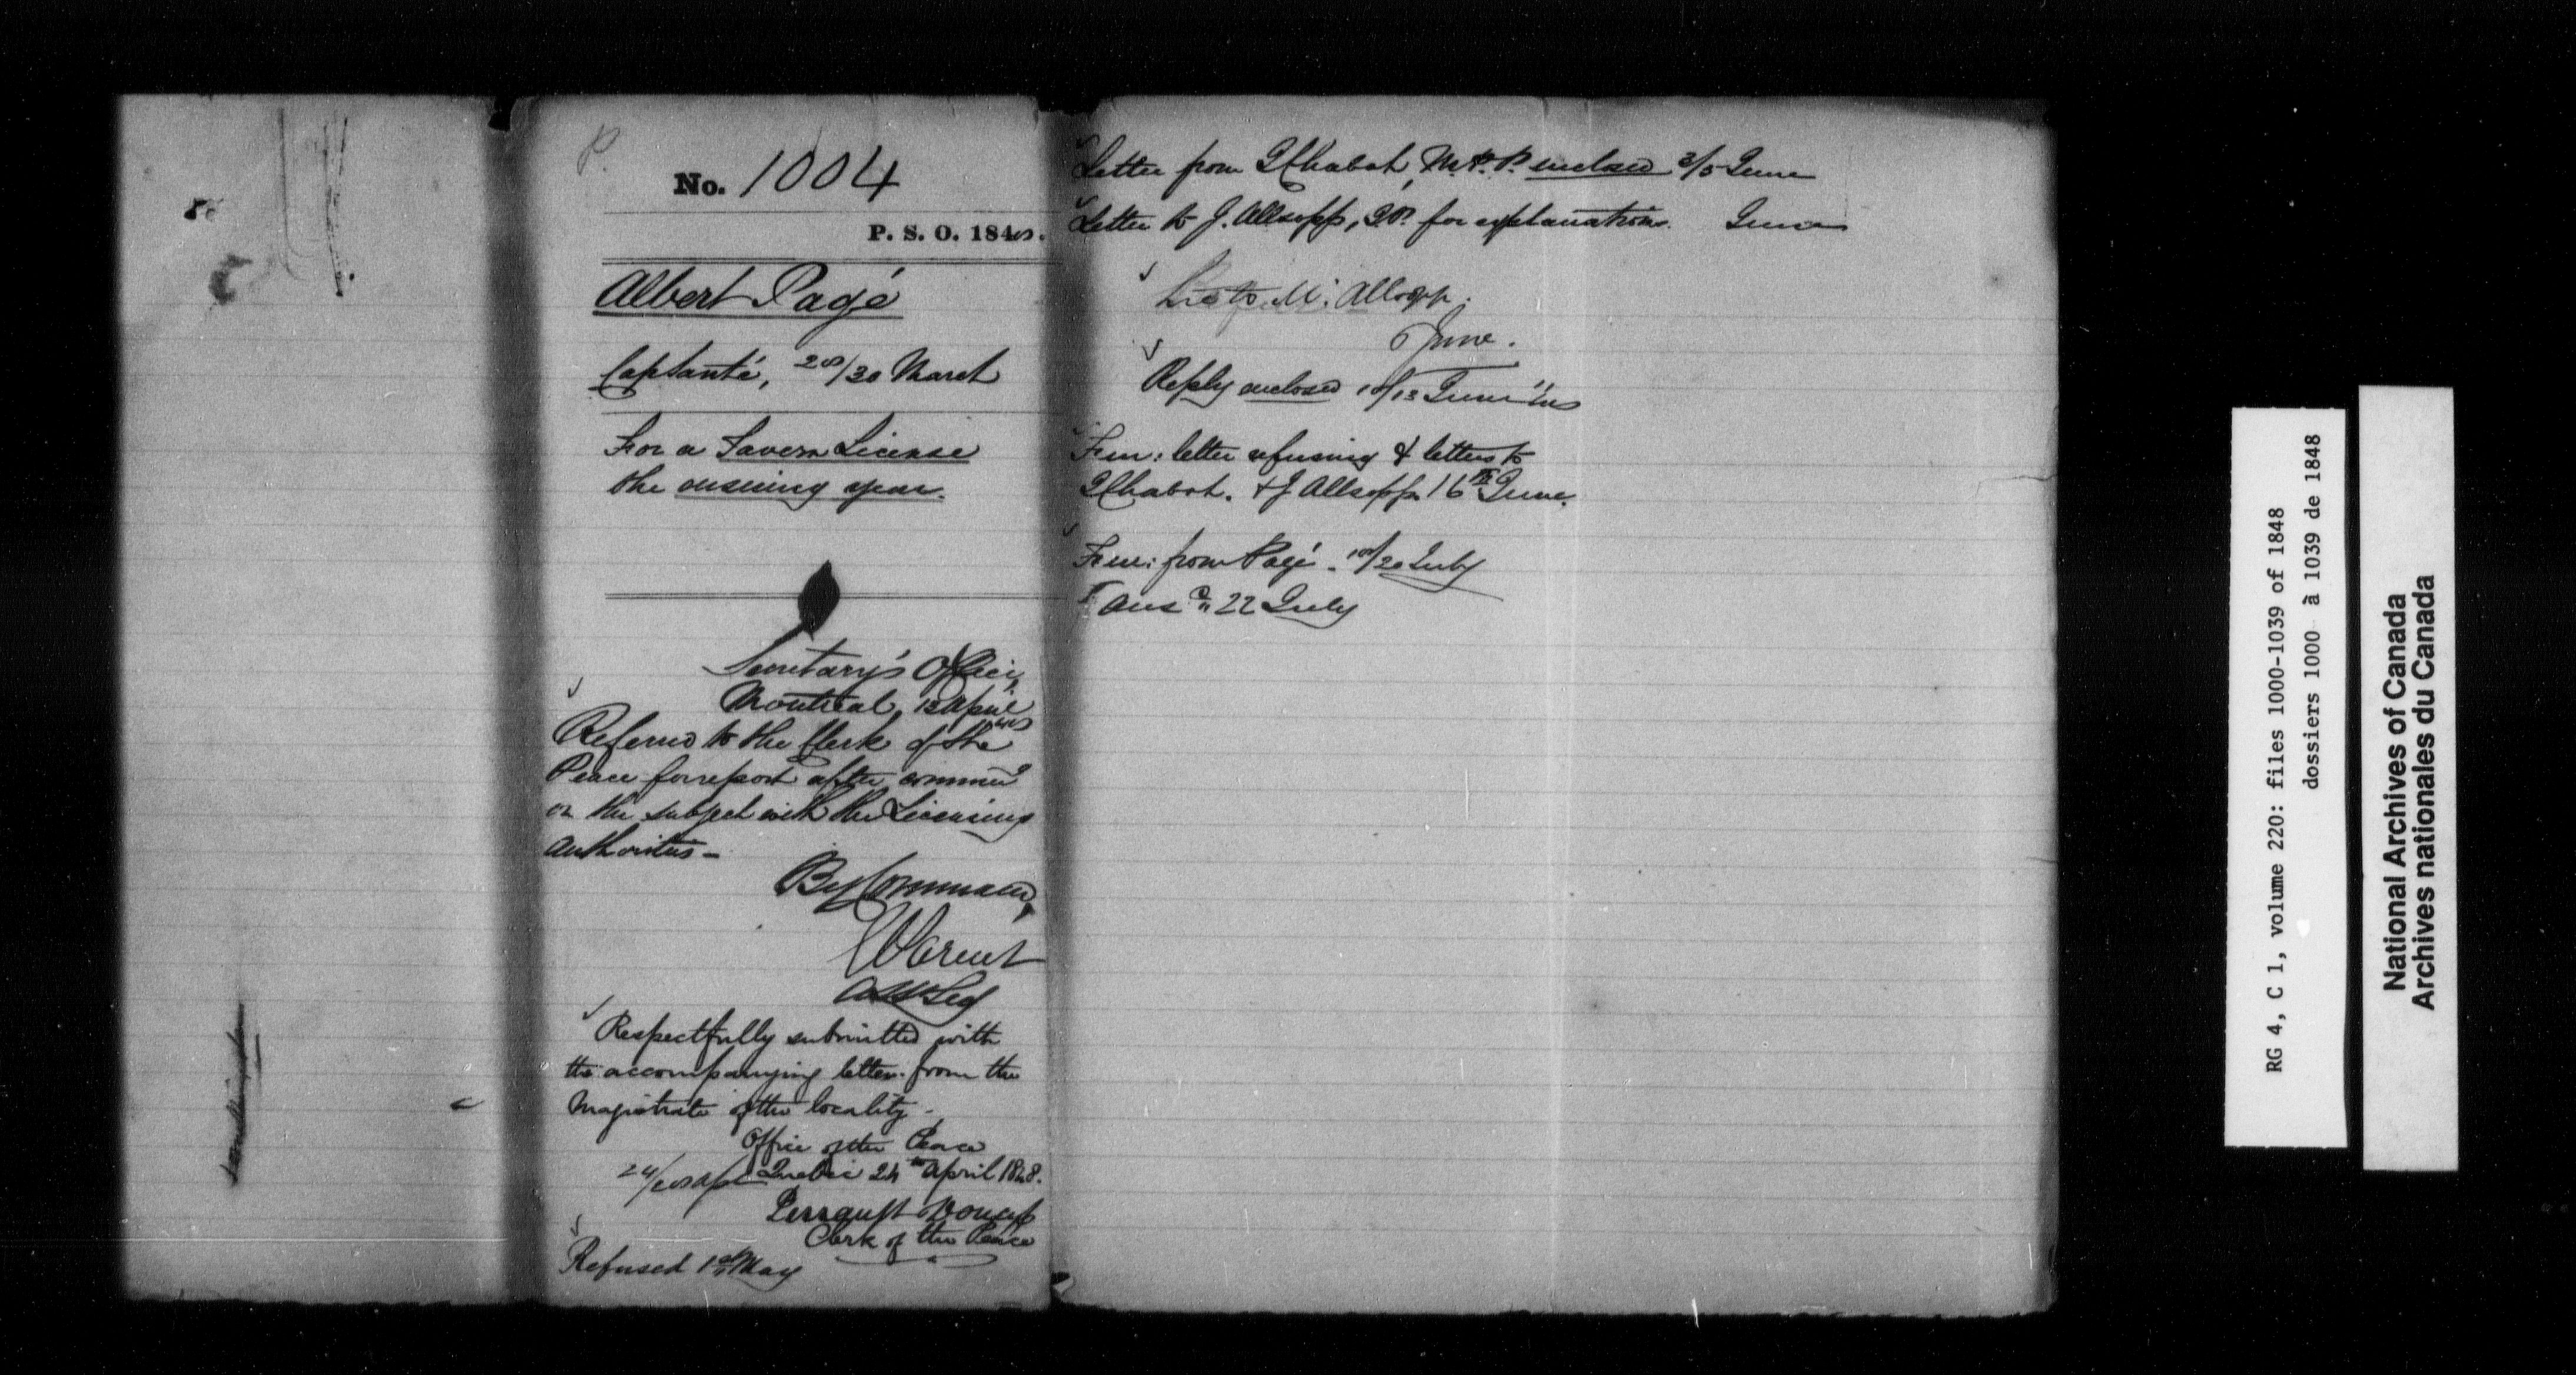 P.
No. 1004
P. S. O. 1848.
Albert Pagé
Capsanté, 28/30 March
For a Tavern License
the ensuing year.
Secretary's Office,
Montreal, 13 April
Referred to the Clerk of the
Peace for report after
on the subject with the Licensing
authorities –
By Command,
E Parent
Asst Secy
Respectfully submitted with
the accompanying letter from the
Magistrate of the locality –
Office of the Peace
Quebec 24th April 1848.
Perrault
Clerk of the Peace
Refused 1st May
Letter from J Chabot, M.P.P. enclosed 3/5 June
Letter to J. Allsopp, J.P. for explanations. June
Mr. Allsopp.
6 June.
Reply enclosed 10/13 June
Fur: letter refusing & letters to
J Chabot. & J Allsopp 16th June.
Fur: from Pagé. /20 July
Ans d. 22 July
RG 4, C 1, volume 220: files 1000-1039 of 1848
dossiers 1000 à 1039 de 1848
National Archives of Canada
Archives nationales du Canada